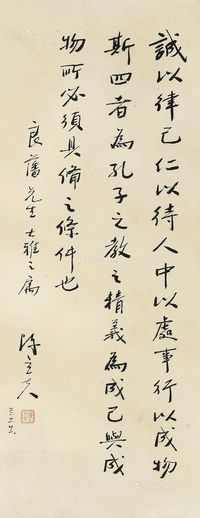 誠以律己仁以待人中以處事行以成物
斯四者為孔子之教之精義為成己與成
物所必須具備之條件也
良藩先生大雅之屬
陳立夫